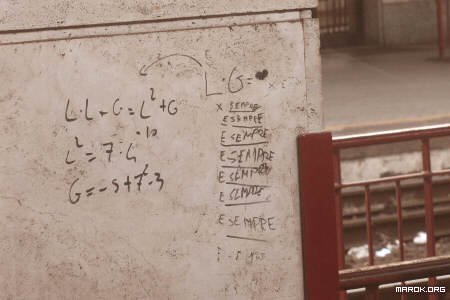 L·G=♥
L·L+G=L²+G
L²=7·4
G=-5+7·3
X SEMPRE
E SEMPRE
E SEMPRE
E SEMPRE
E SEMPRE
E SEMPRE
E SEMPRE
MAROK.ORG